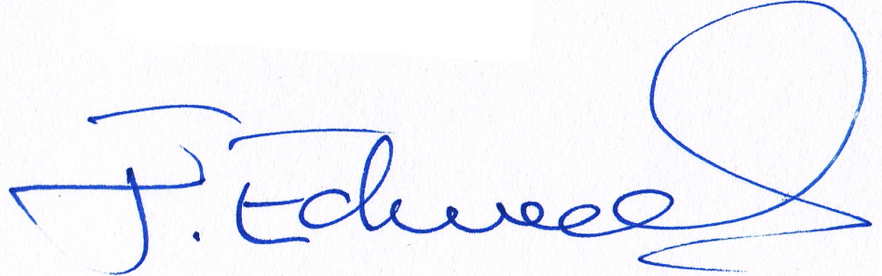 J. Edward